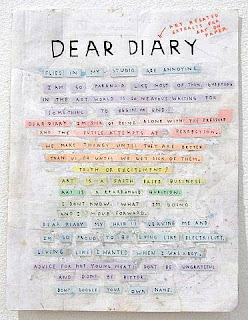 DEAR DIARY
ART RELATED
EXTRACTS FROM
ART
PAPER
FLIES IN MY STUDIO ARE ANNOYING.
I AM SO PARANOID LIKE MOST OF THEM. EVERYONE
IN THE ART WORLD IS SO NERVOUS WAITING FOR
SOMETHING TO BEGIN OR END.
DEAR DIARY I'M SICK OF BEING ALONE WITH THE PRESENT
AND THE FUTILE ATTEMPTS AT PERFECTION.
WE MAKE THINGS UNTIL THEY ARE BETTER
THAN US OR UNTIL WE GET SICK OF THEM.
TRUTH OR EXCITEMENT?
ART IS A FAITH BASED BUSINESS.
ART IS A QUESTION.
I DON'T KNOW WHAT I'M DOING
AND I MOVE FORWARD.
DEAR DIARY MY HAIR IS LEAVING ME AND
I'M SO PROUD TO BE LIVING LIKE
LIVING LIKE I WANTED WHEN I WAS A BOY.
ADVICE FOR ART YOUNG MEAT: DONT BE UNGRATEFUL
AND DONT BE BITTER.
DONT GOOGLE YOUR OWN NAME.